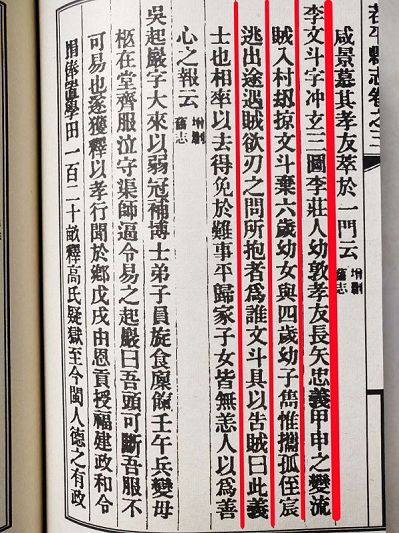 茌平縣志卷之三
咸景慕其孝友萃於一門云 增刪舊志
李文斗字冲玄三圖李莊人幼敦孝友長矢忠義甲申之變流
賊入村刼掠文斗棄六歲幼女與四歲幼子雋惟攜孤侄宸
逃出途遇賊欲刃之問所抱者爲誰文斗具以告賊曰此義
士也相率以去得免於難事平歸家子女皆無恙人以爲善
心之報云 增刪舊志
吳起嚴字大來以弱冠補博士弟子員旋食廩餼壬午兵變母
柩在堂齊服泣守渠師逼令易之起嚴曰吾頭可斷吾服不
可易也遂獲釋以孝行聞於鄉戊戌由恩貢授福建政和令
捐俸置學田一百二十畝釋高氏疑獄至今閩人德之有政